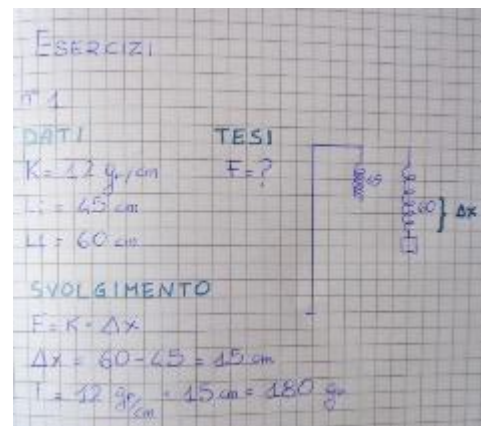 ESERCIZI
n° 1
DATI TESI
K = 12 gr/cm F = ?
Li = 45 cm 45
Lf = 60 cm 60 } Δx
SVOLGIMENTO
F = K · Δx
Δx = 60 - 45 = 15 cm
F = 12 gr/cm · 15 cm = 180 gr